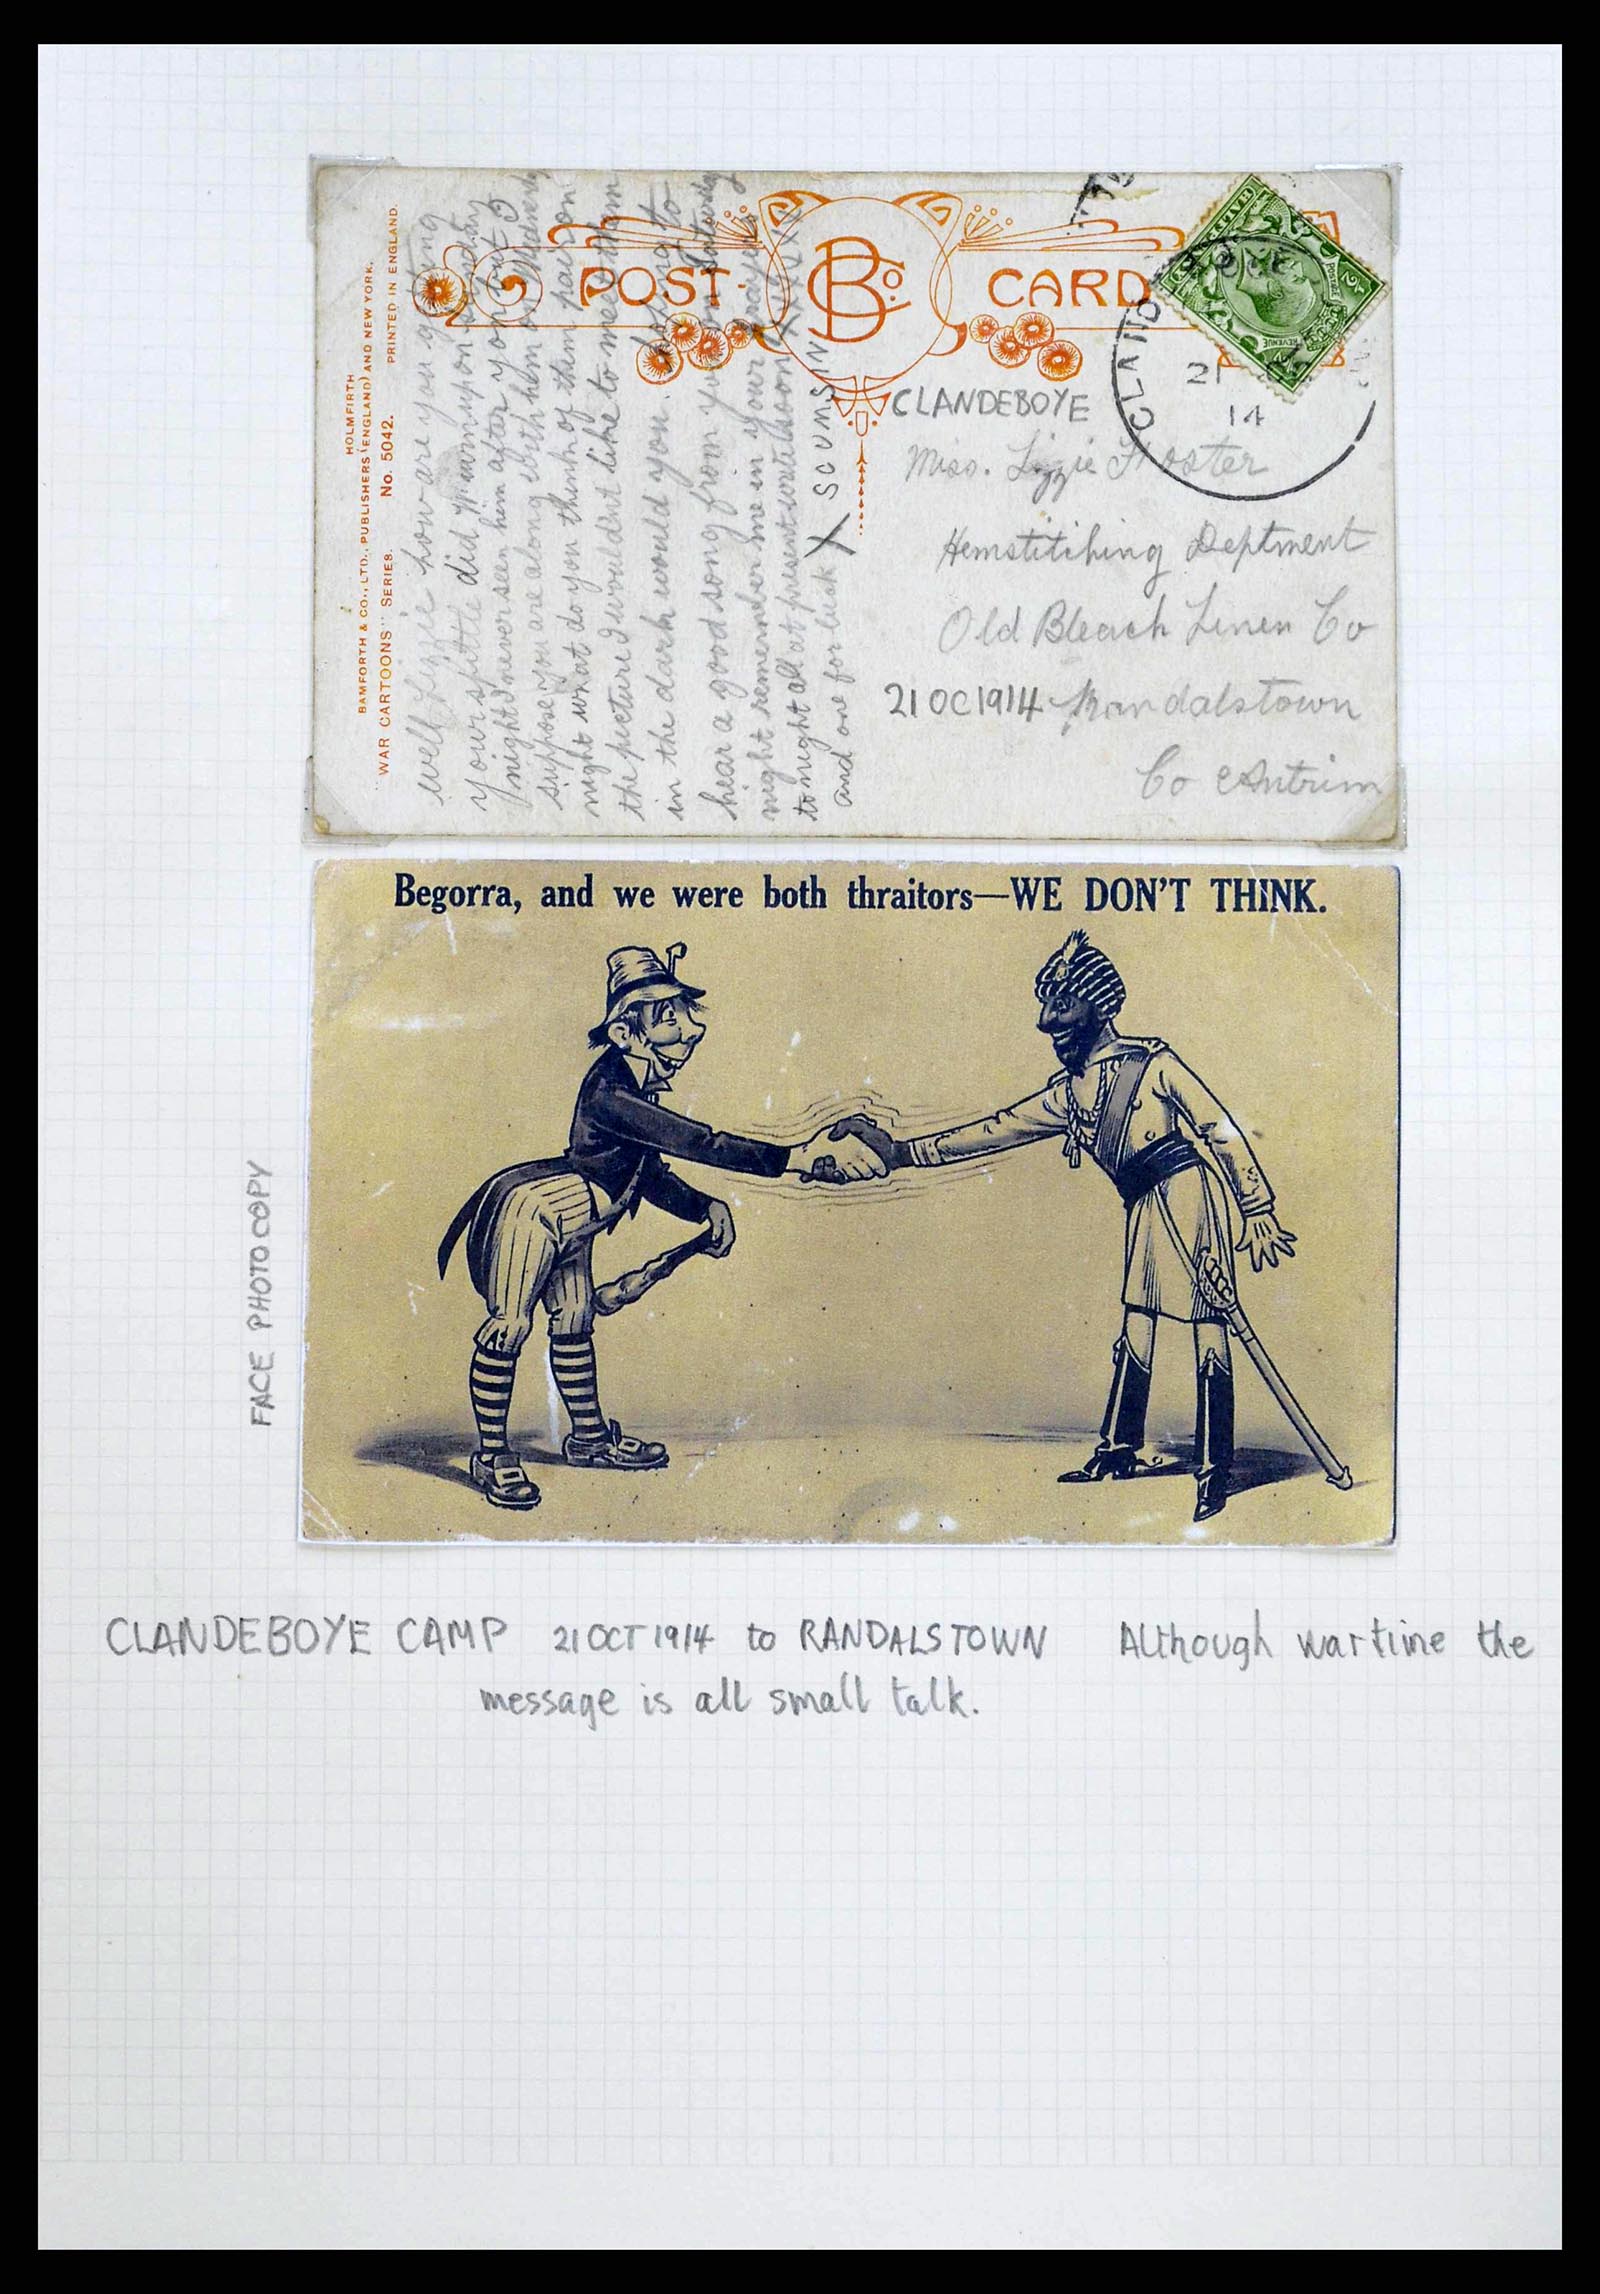 HOLMFIRTH
BAMFORTH & CO., LTD., PUBLISHERS (ENGLAND) AND NEW YORK.
"WAR CARTOONS" SERIES. No. 5042. PRINTED IN ENGLAND.
POST CARD
B Co.
well Lizzie how are you getting
your spittle did on Sunday
night I never seen him after you but I
suppose you are along with him on Wednesday
night what do you think of them pair on
the picture I wouldnt like to meet them
in the dark would you. hoping to
hear a good song from you on Saturday
night remember me in your prayers
to night all at present write soon XXXXXX
and one for luck X
SCUMSIN
CLAND
21
14
POSTAGE
REVENUE
CLANDEBOYE
Miss. Lizzie Foster
Hemstitching Deptment
Old Bleach Linen Co
21 OC 1914 Randalstown
Co Antrim
Begorra, and we were both thraitors—WE DON'T THINK.
FACE PHOTOCOPY
CLANDEBOYE CAMP 21 OCT 1914 to RANDALSTOWN Although wartime the
message is all small talk.